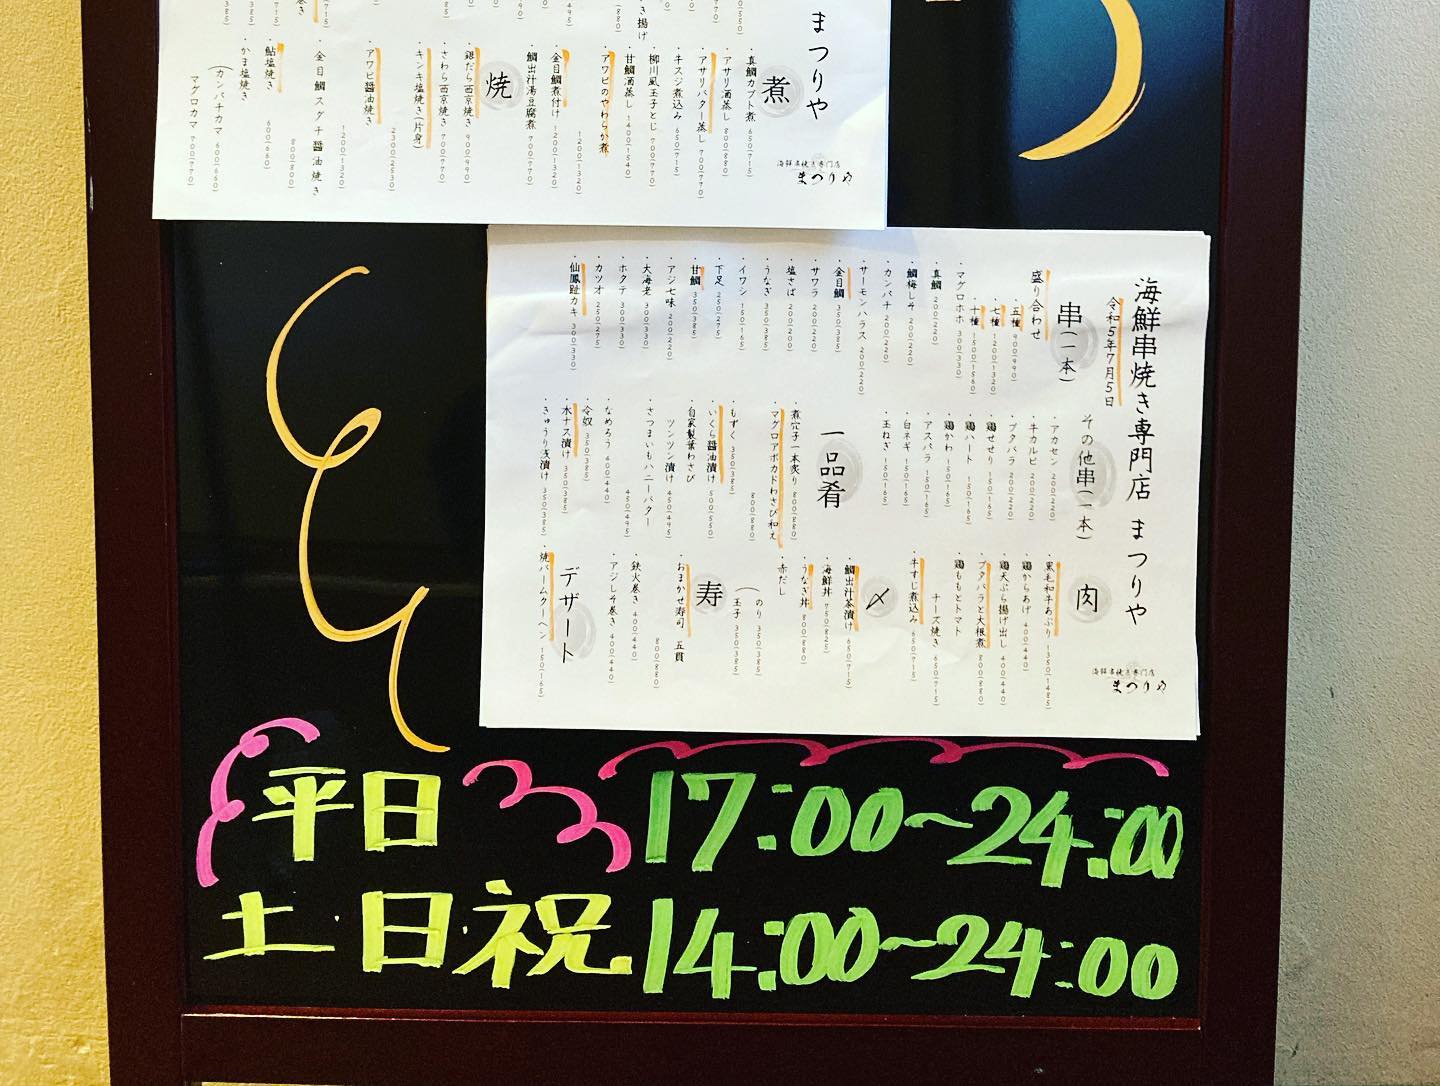 まつりや
煮
・真鯛カブト煮 650(715)
・アサリ酒蒸し 800(880)
・アサリバター蒸し 700(770)
・牛スジ煮込み 650(715)
・柳川風玉子とじ 700(770)
・甘鯛酒蒸し 1400(1540)
・アワビのやわらか煮 1200(1320)
・金目鯛煮付け 1200(1320)
・鯛出汁湯豆腐煮 700(770)
焼
・銀だら西京焼き 900(990)
・さわら西京焼き 700(770)
・キンキ塩焼き(片身) 2300(2530)
・アワビ醤油焼き 1200(1320)
・金目鯛スグチ醤油焼き 800(800)
・鮎塩焼き 600(660)
・かま塩焼き
(カンパチカマ 600(660)
マグロカマ 700(770)
海鮮串焼き専門店
まつりや
海鮮串焼き専門店 まつりや
令和5年7月5日
串(一本)
盛り合わせ
・五種 900(990)
・七種 1200(1320)
・十種 1500(1560)
・マグロホホ 300(330)
・真鯛 200(220)
・鯛梅しそ 200(220)
・カンパチ 200(220)
・サーモンハラス 200(220)
・金目鯛 350(385)
・サワラ 200(220)
・塩さば 200(220)
・うなぎ 350(385)
・イワシ 150(165)
・下足 250(275)
・甘鯛 350(385)
・アジ七味 200(220)
・大海老 300(330)
・ホタテ 300(330)
・カツオ 250(275)
・仙鳳趾カキ 300(330)
その他串(一本)
・アカセン 200(220)
・牛カルビ 200(220)
・ブタバラ 200(220)
・鶏せせり 150(165)
・鶏ハート 150(165)
・鶏かわ 150(165)
・アスパラ 150(165)
・白ネギ 150(165)
・玉ねぎ 150(165)
一品肴
・煮穴子一本炙り 800(880)
・マグロアボカドわさび和え 800(880)
・もずく 350(385)
・いくら醤油漬け 500(550)
・自家製葉わさび
ツンツン漬け 450(495)
・さつまいもハニーバター 450(495)
・なめろう 400(440)
・冷奴 350(385)
・水ナス漬け 350(385)
・きゅうり浅漬け 350(385)
肉
・黒毛和牛あぶり 1350(1485)
・鶏からあげ 400(440)
・鶏天ぷら揚げ出し 400(440)
・ブタバラと大根煮 800(880)
・鶏ももとトマト
チーズ焼き 650(715)
・牛すじ煮込み 650(715)
〆
・鯛出汁茶漬け 650(715)
・海鮮丼 750(825)
・うなぎ丼 800(880)
・赤だし
(のり 350(385)
玉子 350(385)
寿
・おまかせ寿司 五貫 800(880)
・鉄火巻き 400(440)
・アジしそ巻き 400(440)
デザート
・焼バームクーヘン 150(165)
海鮮串焼き専門店
まつりや
平日 17:00~24:00
土・日・祝 14:00~24:00